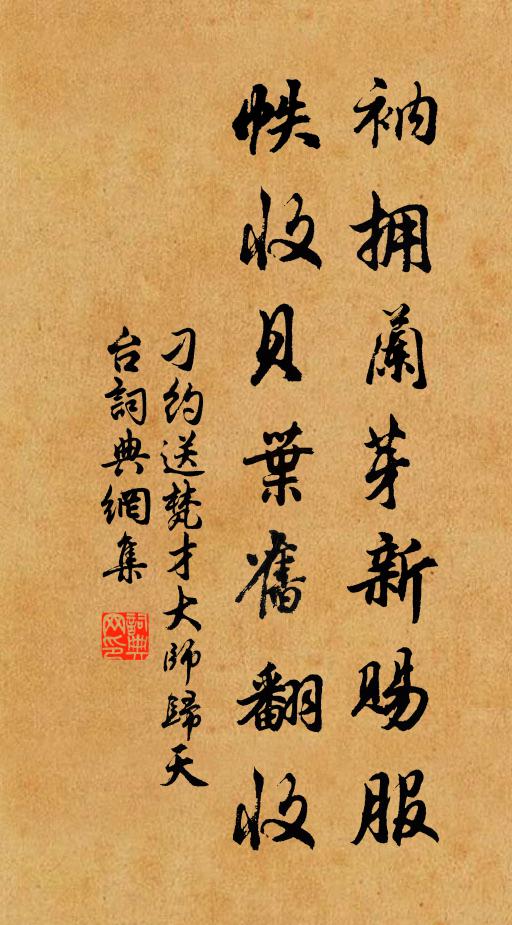 衲拥蘭芽新賜服
帙收貝葉舊翻收
刁約送梵才大師歸天
台詞典網集
詞典网印